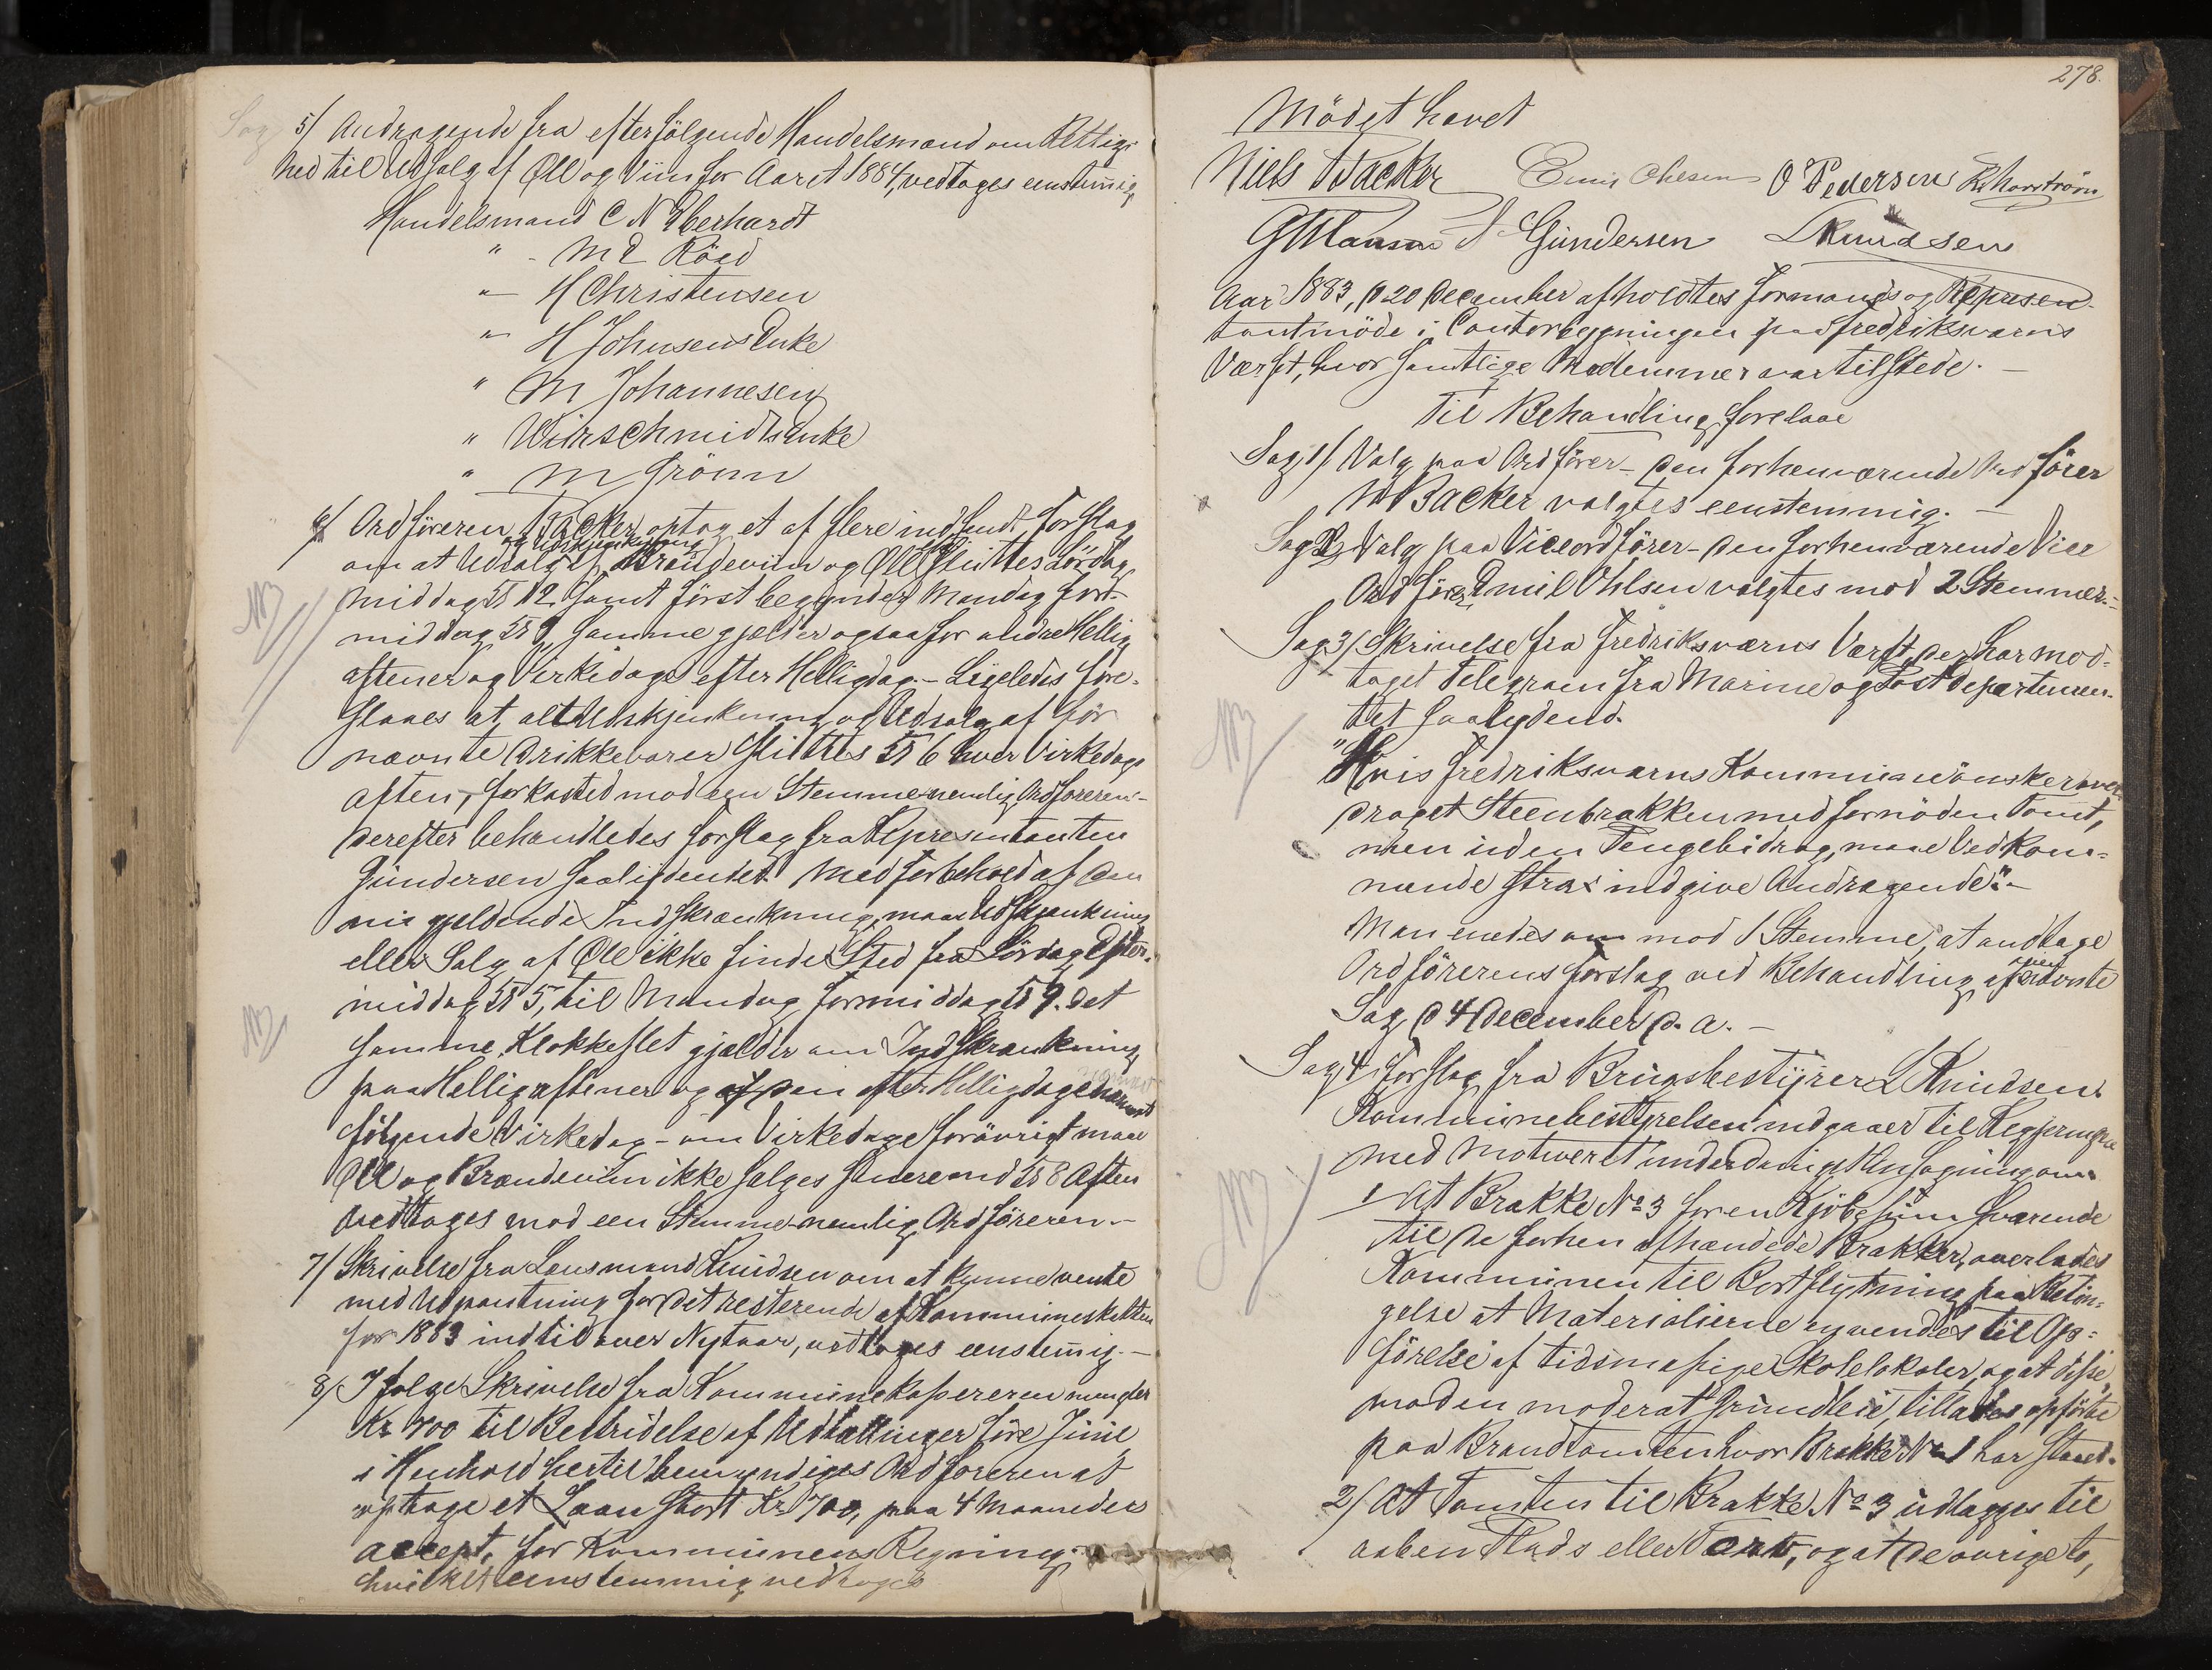 Sag 5/ Andragende fra efterfölgende Handelsmænd om Rettig-
hed til Udsalg af Øll og Viin for Aaret 1884, vedtoges eenstemig
Handelsmand C N Eberhardt
" - M E Röed
" - H Christensen
" - H Johnsens Enke
" M Johannesen
" Wiirschmidts Enke
" M Grönn
6/ Ordföreren Backer optog et af flere indsendt Forslag
og Udskjenkning
om at Udsalg af Brændeviin og Øll sluttes Lördag
middag Kl 12 samt först begynder Mandag for-
middag Kl 9, samme gjælder ogsaa for andre Hellig
aftener og Virkedage efter Helligdag. - Ligeledes fore-
slaaes at alt Udskjenkning og Udsalg af för
nævnte Drikkevarer sluttes Kl 6 hver Virkedags
aften, forkasted mod een Stemme nemlig Ordföreren -
Derefter behandledes Forslag fra Repræsentanten
Gündersen saalydende: Med forbehold af den
nu gjeldende Indskrænkning, maa Udskjænkning
eller Salg af Øll ikke finde Sted fra Lördag Efter-
middag Kl 5, til Mandag formiddag Kl 9. Det
samme Klokkeslet gjælder om Indskrænkning
paa Helligaftener og af den efter Helligdagen nærmest
fölgende Virkedag - om Virkedage forövrigt maa
Øll og Brændeviin ikke sælges senere end Kl 8 Aften
vedtoges mod een Stemme - nemlig Ordföreren -
7/ Skrivelse fra Lensmand Knudsen om at kunne vente
med Udpantning for det resterende af Kommuneskatten
for 1883 indtil over Nytaar, vedtoges eenstemig. -
8/ I fölge Skrivelse fra Kommunekassereren mangler
Kr 700 til Bestridelse af Udtællinger före Juni
i Henhold hertil bemyndiges Ordföreren at
optage et Laan stort Kr 700, paa 4 Maaneders
accept, for Kommunens Regning,
hvilket eenstemmig vedtoges
278.
Mödet hævet
Niels Backer Emil Ohlsen O Pedersen
G Hansen Gündersen L Knudsen
Aar 1883, D 20 December afholdtes Formands og Repræsen-
tantmöde i Contorbygningen paa Fredriksværns
Værft, hvor samtlige Medlemmer var tilstede. -
Til Behandling forelaae
Sag 1/ Valg paa Ordförer - Den forhenværende Ordförer
N Backer valgtes eenstemmig. -
Sag 2/ Valg paa Viceordförer - Den forhenværende Vice
Ordförer Emil Ohlsen valgtes mod 2 Stemmer. -
Sag 3/ Skrivelse fra Fredriksværns Værft, der har mod-
taget Telegram fra Marine og Post Departemen-
tet saalydend.
"Hvis Fredriksværns Kommune önsker over
draget Steenbrakken med fornöden Tomt,
men uden Pengebidrag, maae Vedkom-
mende strax indgive Andragende". -
Man enedes om mod 1 Stemme, at andtage
Ordförerens Forslag ved Behandling af
Sag D 4 December D. a. -
Sag 4/ Forslag fra Brugsbestyrer L Knudsen
Kommunebestyrelsen indgaaer til Regjeringen
med Motiveret underdanigst Ansøgning om
1/ At Brakke No 3 for en Kjöbesum svarende
til de forhen afhændede Brakker, overlades
Kommunen til Bortflytning paa Betin-
gelse at Materialierne anvendes til Op-
förelse af tidsmæssige Skolelokaler, og at disse
mod en moderat Grundleie, tillades opförte
paa Brandtomten hvor Brakke No 1 har staaet.
2/ At Tomten til Brakke No 3 udlægges til
aaben Plads eller Torv, og at de övrige to,